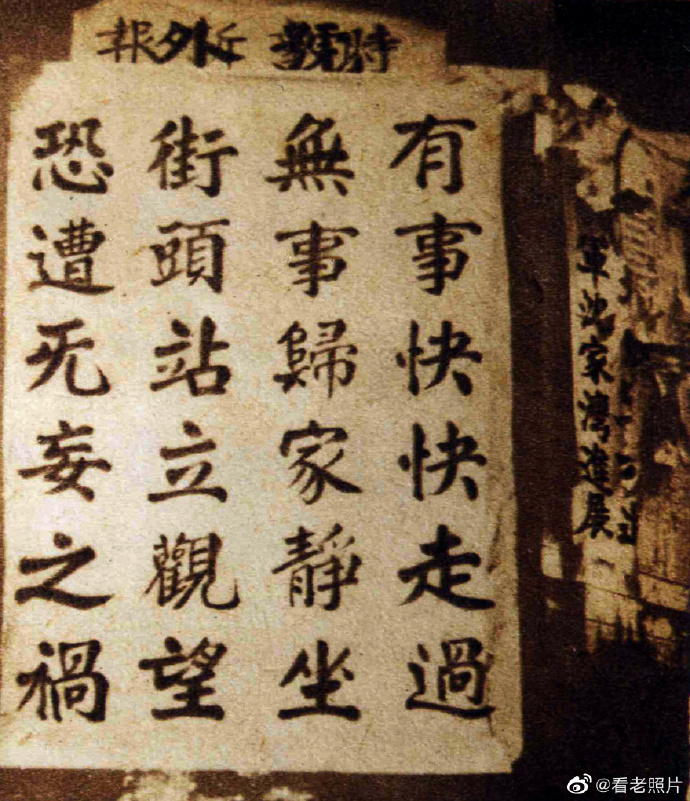 號外報
有事快快走過
無事歸家靜坐
街頭站立觀望
恐遭旡妄之禍
軍沈家灣進展
@看老照片